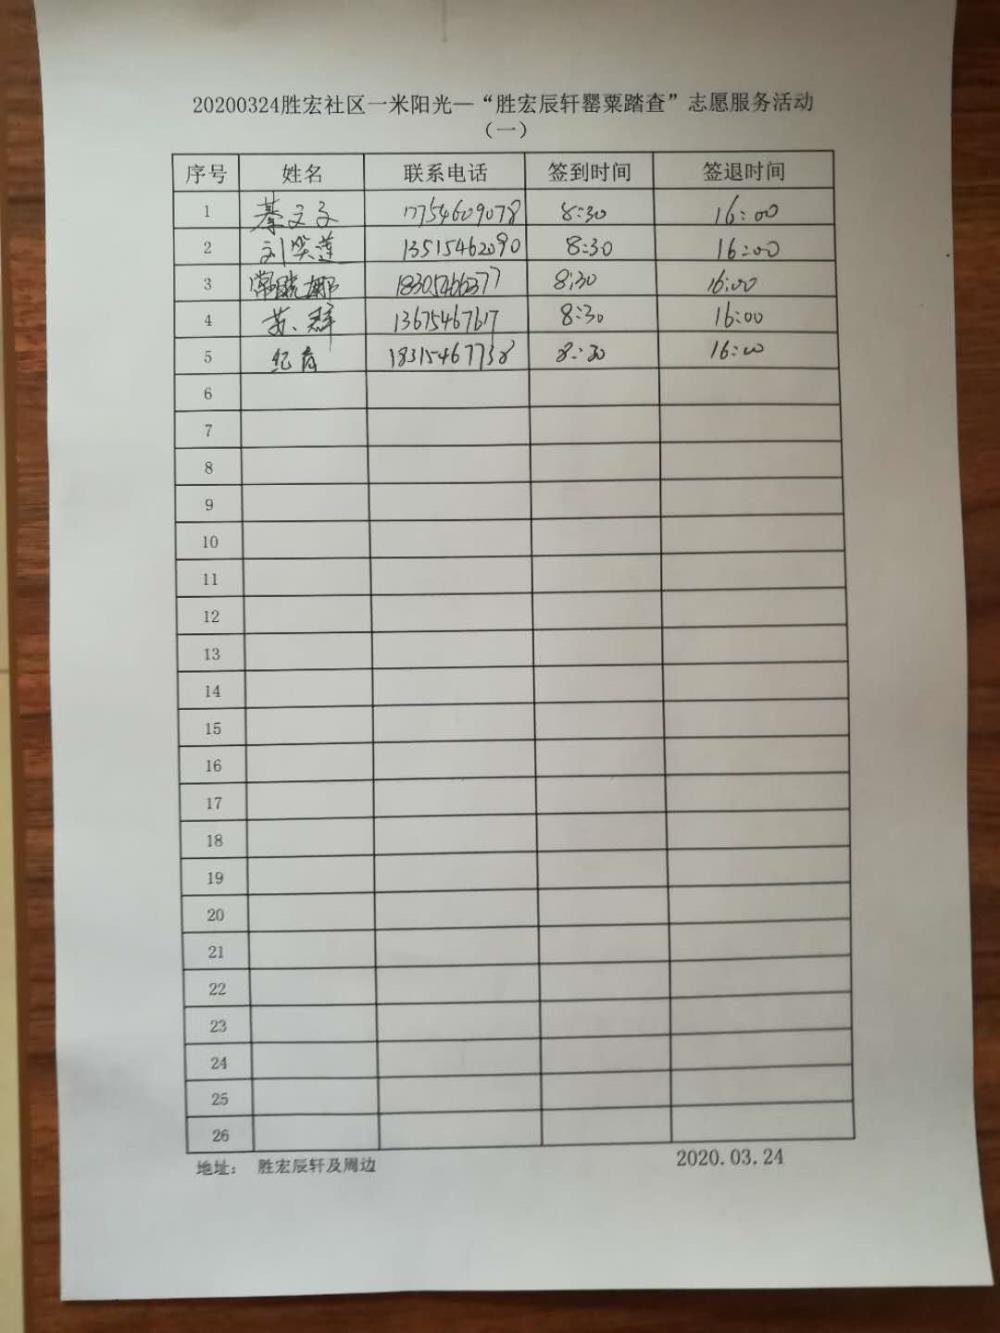 20200324胜宏社区一米阳光—“胜宏辰轩罂粟踏查”志愿服务活动
（一）
序号 姓名 联系电话 签到时间 签退时间
1 綦文文 17754609078 8:30 16:00
2 刘笑莲 13515462090 8:30 16:00
3 8:30 16:00
4 苏群 13675467617 8:30 16:00
5 纪育 18315467738 8:30 16:00
6
7
8
9
10
11
12
13
14
15
16
17
18
19
20
21
22
23
24
25
26
地址： 胜宏辰轩及周边 2020.03.24